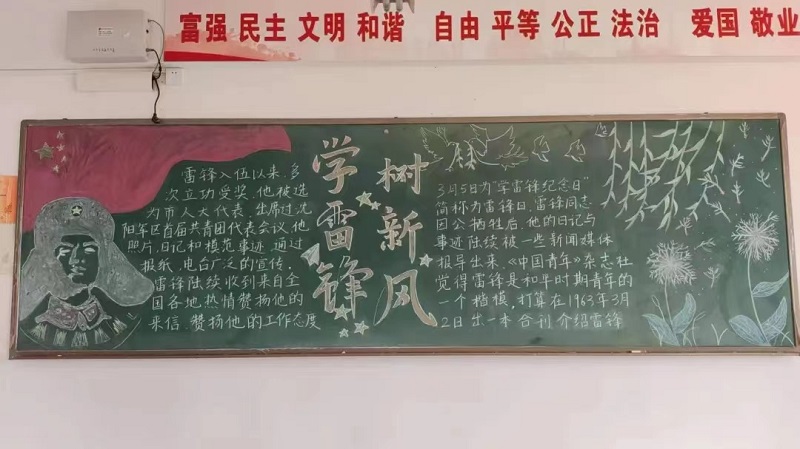 富强 民主 文明 和谐 自由 平等 公正 法治 爱国 敬业
学雷锋
树新风
雷锋入伍以来,多
次立功受奖,他被选
为市人大代表,出席过沈
阳军区首届共青团代表会议,他
照片,日记和模范事迹,通过
报纸,电台广泛的宣传,
雷锋陆续收到来自全
国各地热情赞扬他的
来信,赞扬他的工作态度
3月5日为"学雷锋纪念日"
简称为雷锋日,雷锋同志
因公牺牲后,他的日记与
事迹陆续被一些新闻媒体
报导出来,《中国青年》杂志社
觉得雷锋是和平时期青年的
一个楷模,打算在1963年3月
2日出一本合刊介绍雷锋